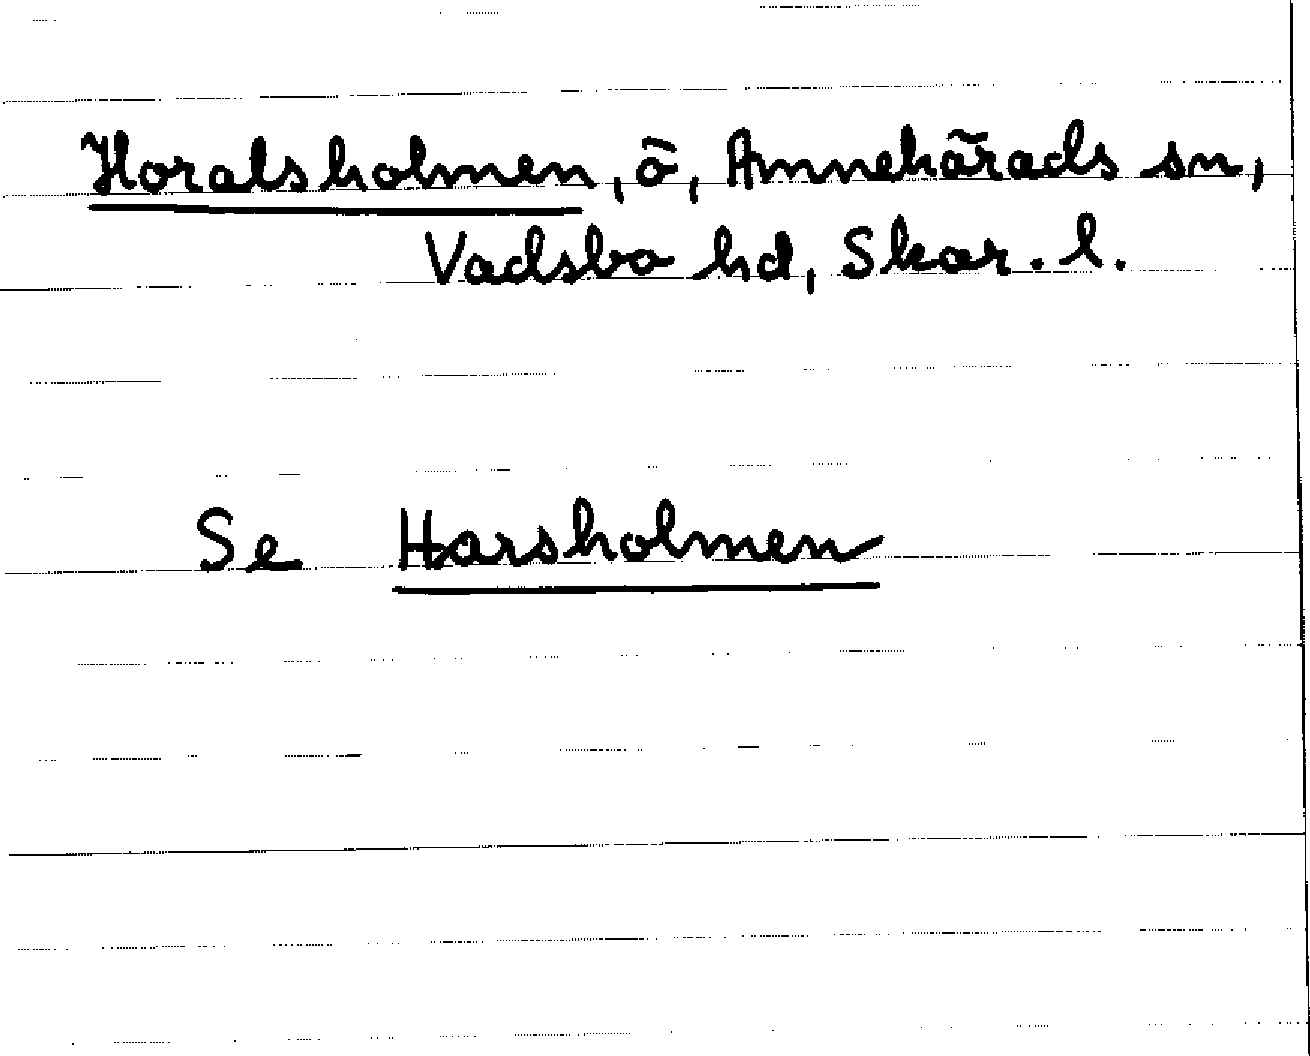 Horalsholmen, ö, Amnehärads sn,
Vadsbo hd, Skar. l.
Se Harsholmen